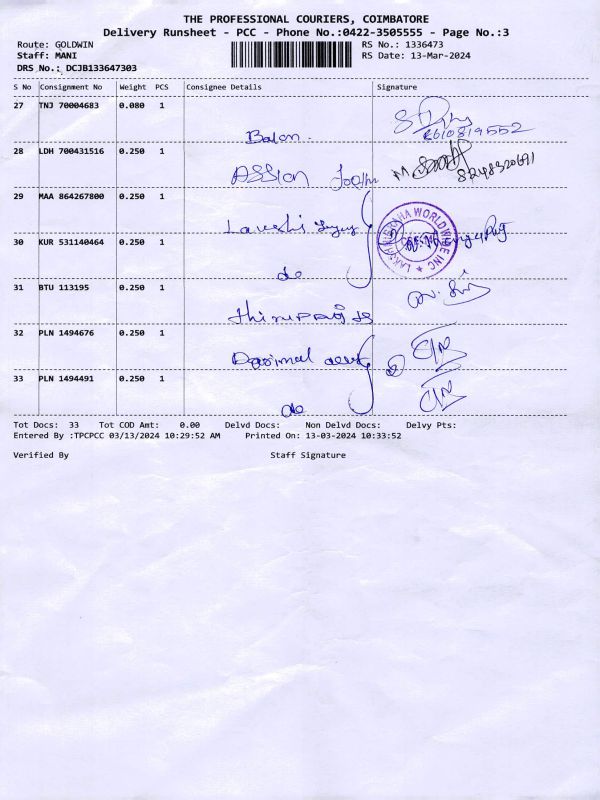 THE PROFESSIONAL COURIERS, COIMBATORE
Delivery Runsheet - PCC - Phone No.:0422-3505555 - Page No.:3
Route: GOLDWIN RS No.: 1336473
Staff: MANI RS Date: 13-Mar-2024
DRS No.: DCJB133647303
S No Consignment No Weight PCS Consignee Details Signature
27 TNJ 70004683 0.080 1
Balan. 8610819552
28 LDH 700431516 0.250 1
ASSion
29 MAA 864267800 0.250 1
30 KUR 531140464 0.250 1
do
31 BTU 113195 0.250 1
32 PLN 1494676 0.250 1
33 PLN 1494491 0.250 1
do
Tot Docs: 33 Tot COD Amt: 0.00 Delvd Docs: Non Delvd Docs: Delvy Pts:
Entered By :TPCPCC 03/13/2024 10:29:52 AM Printed On: 13-03-2024 10:33:52
Verified By Staff Signature